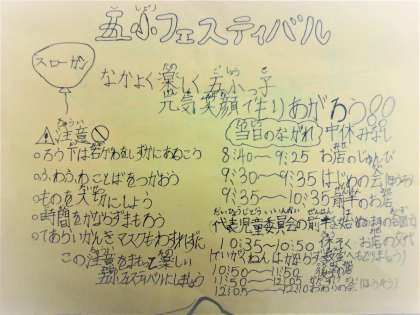 五小フェスティバル
スローガン
なかよく楽しく五小っ子
元気笑顔でもりあがろう!!
注意
○ろう下は右がわをしずかにあるこう
○ふわふわことばをつかおう
○ものを大切にしよう
○時間をかならずまもろう
○てあらいかんきマスクもわすれずに
この注意をまもって楽しい
五小フェスティバルにしましょう
当日のながれ 中休みなし
8:40〜9:25 お店のじゅんび
9:30〜9:35 はじめの会(ほうそう)
9:35〜10:35 前半のお店
代表児童委員会の前半
10:35〜10:50 お店の交代
10:50〜11:50 後半のお店
12:05〜12:10 おわりの会(ほうそう)